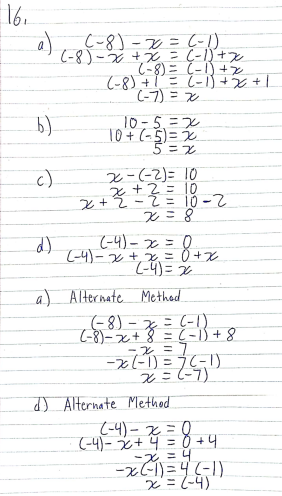 16.
a) (-8) - x = (-1)
(-8) - x + x = (-1) + x
(-8) = (-1) + x
(-8) + 1 = (-1) + x + 1
(-7) = x
b) 10 - 5 = x
10 + (-5) = x
5 = x
c) x - (-2) = 10
x + 2 = 10
x + 2 - 2 = 10 - 2
x = 8
d) (-4) - x = 0
(-4) - x + x = 0 + x
(-4) = x
a) Alternate Method
(-8) - x = (-1)
(-8) - x + 8 = (-1) + 8
-x = 7
-x(-1) = 7(-1)
x = (-7)
d) Alternate Method
(-4) - x = 0
(-4) - x + 4 = 0 + 4
-x = 4
-x(-1) = 4(-1)
x = (-4)